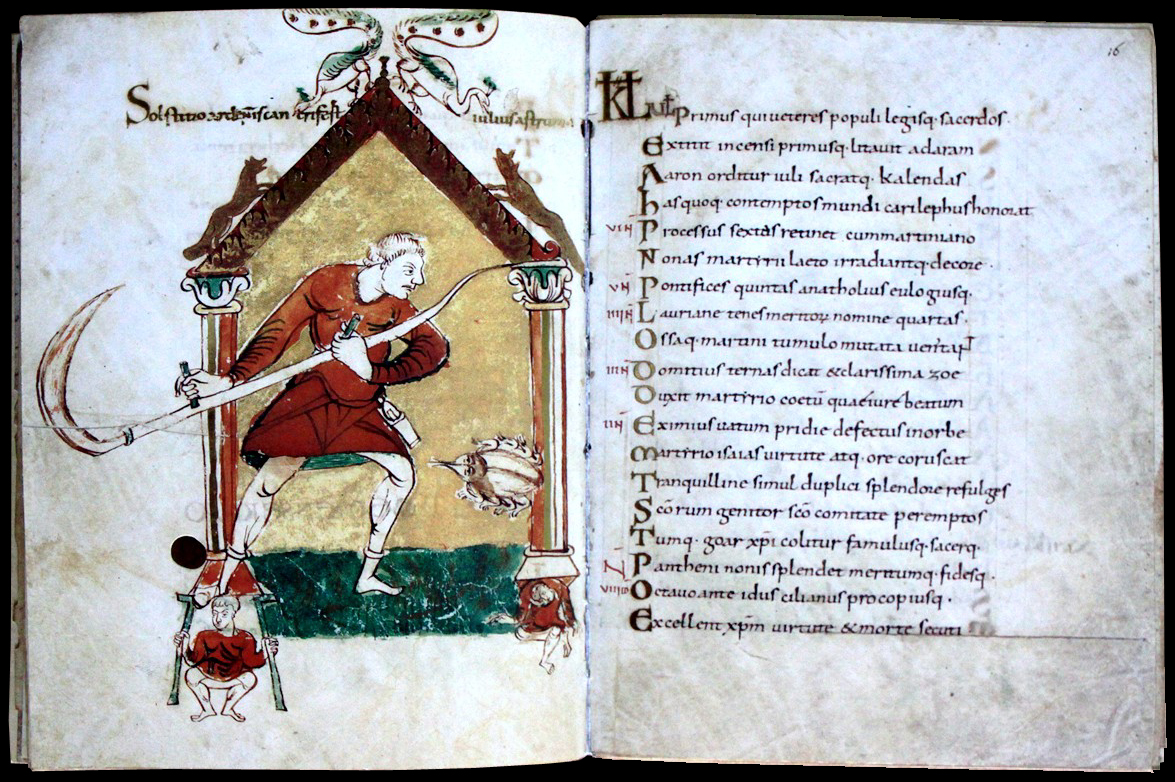 Solstitio ardentis cancri fert iulius astrum
16
KL Iul Primus qui ueteres populi legisq· sacerdos·
Extitit incensi primusq· litauit ad aram
Aaron orditur iuli sacratq· kalendas
hasquoq· contemptos mundi carilephus honorat
VIN Processus sextas retinet cum martiniano
Nonas martyrii laeto irradiantq· decore·
VN Pontifices quintas anatholius eulogiusq·
IIIIN Lauriane tenes meritoꝝ nomine quartas·
Ossaq· martini tumulo mutata
IIIN Domitius ternas dicat & clarissima zoe
Duxit martyrio coetū quae iure beatum
IIN Eximius uatum pridie defectus in orbe
Martyrio isaias uirtute atq· ore coruscat
Tranquilline simul duplici splendore refulges
Scōrum genitor scō comitate peremptos
Tumq· goar xp̄i colitur famulusq· sacerq·
N Pantheni nonis splendet meritumq· fidesq·
VIIIID Octauo ante idus cilianus procopiusq·
Excellent xp̄m uirtute & morte secuti